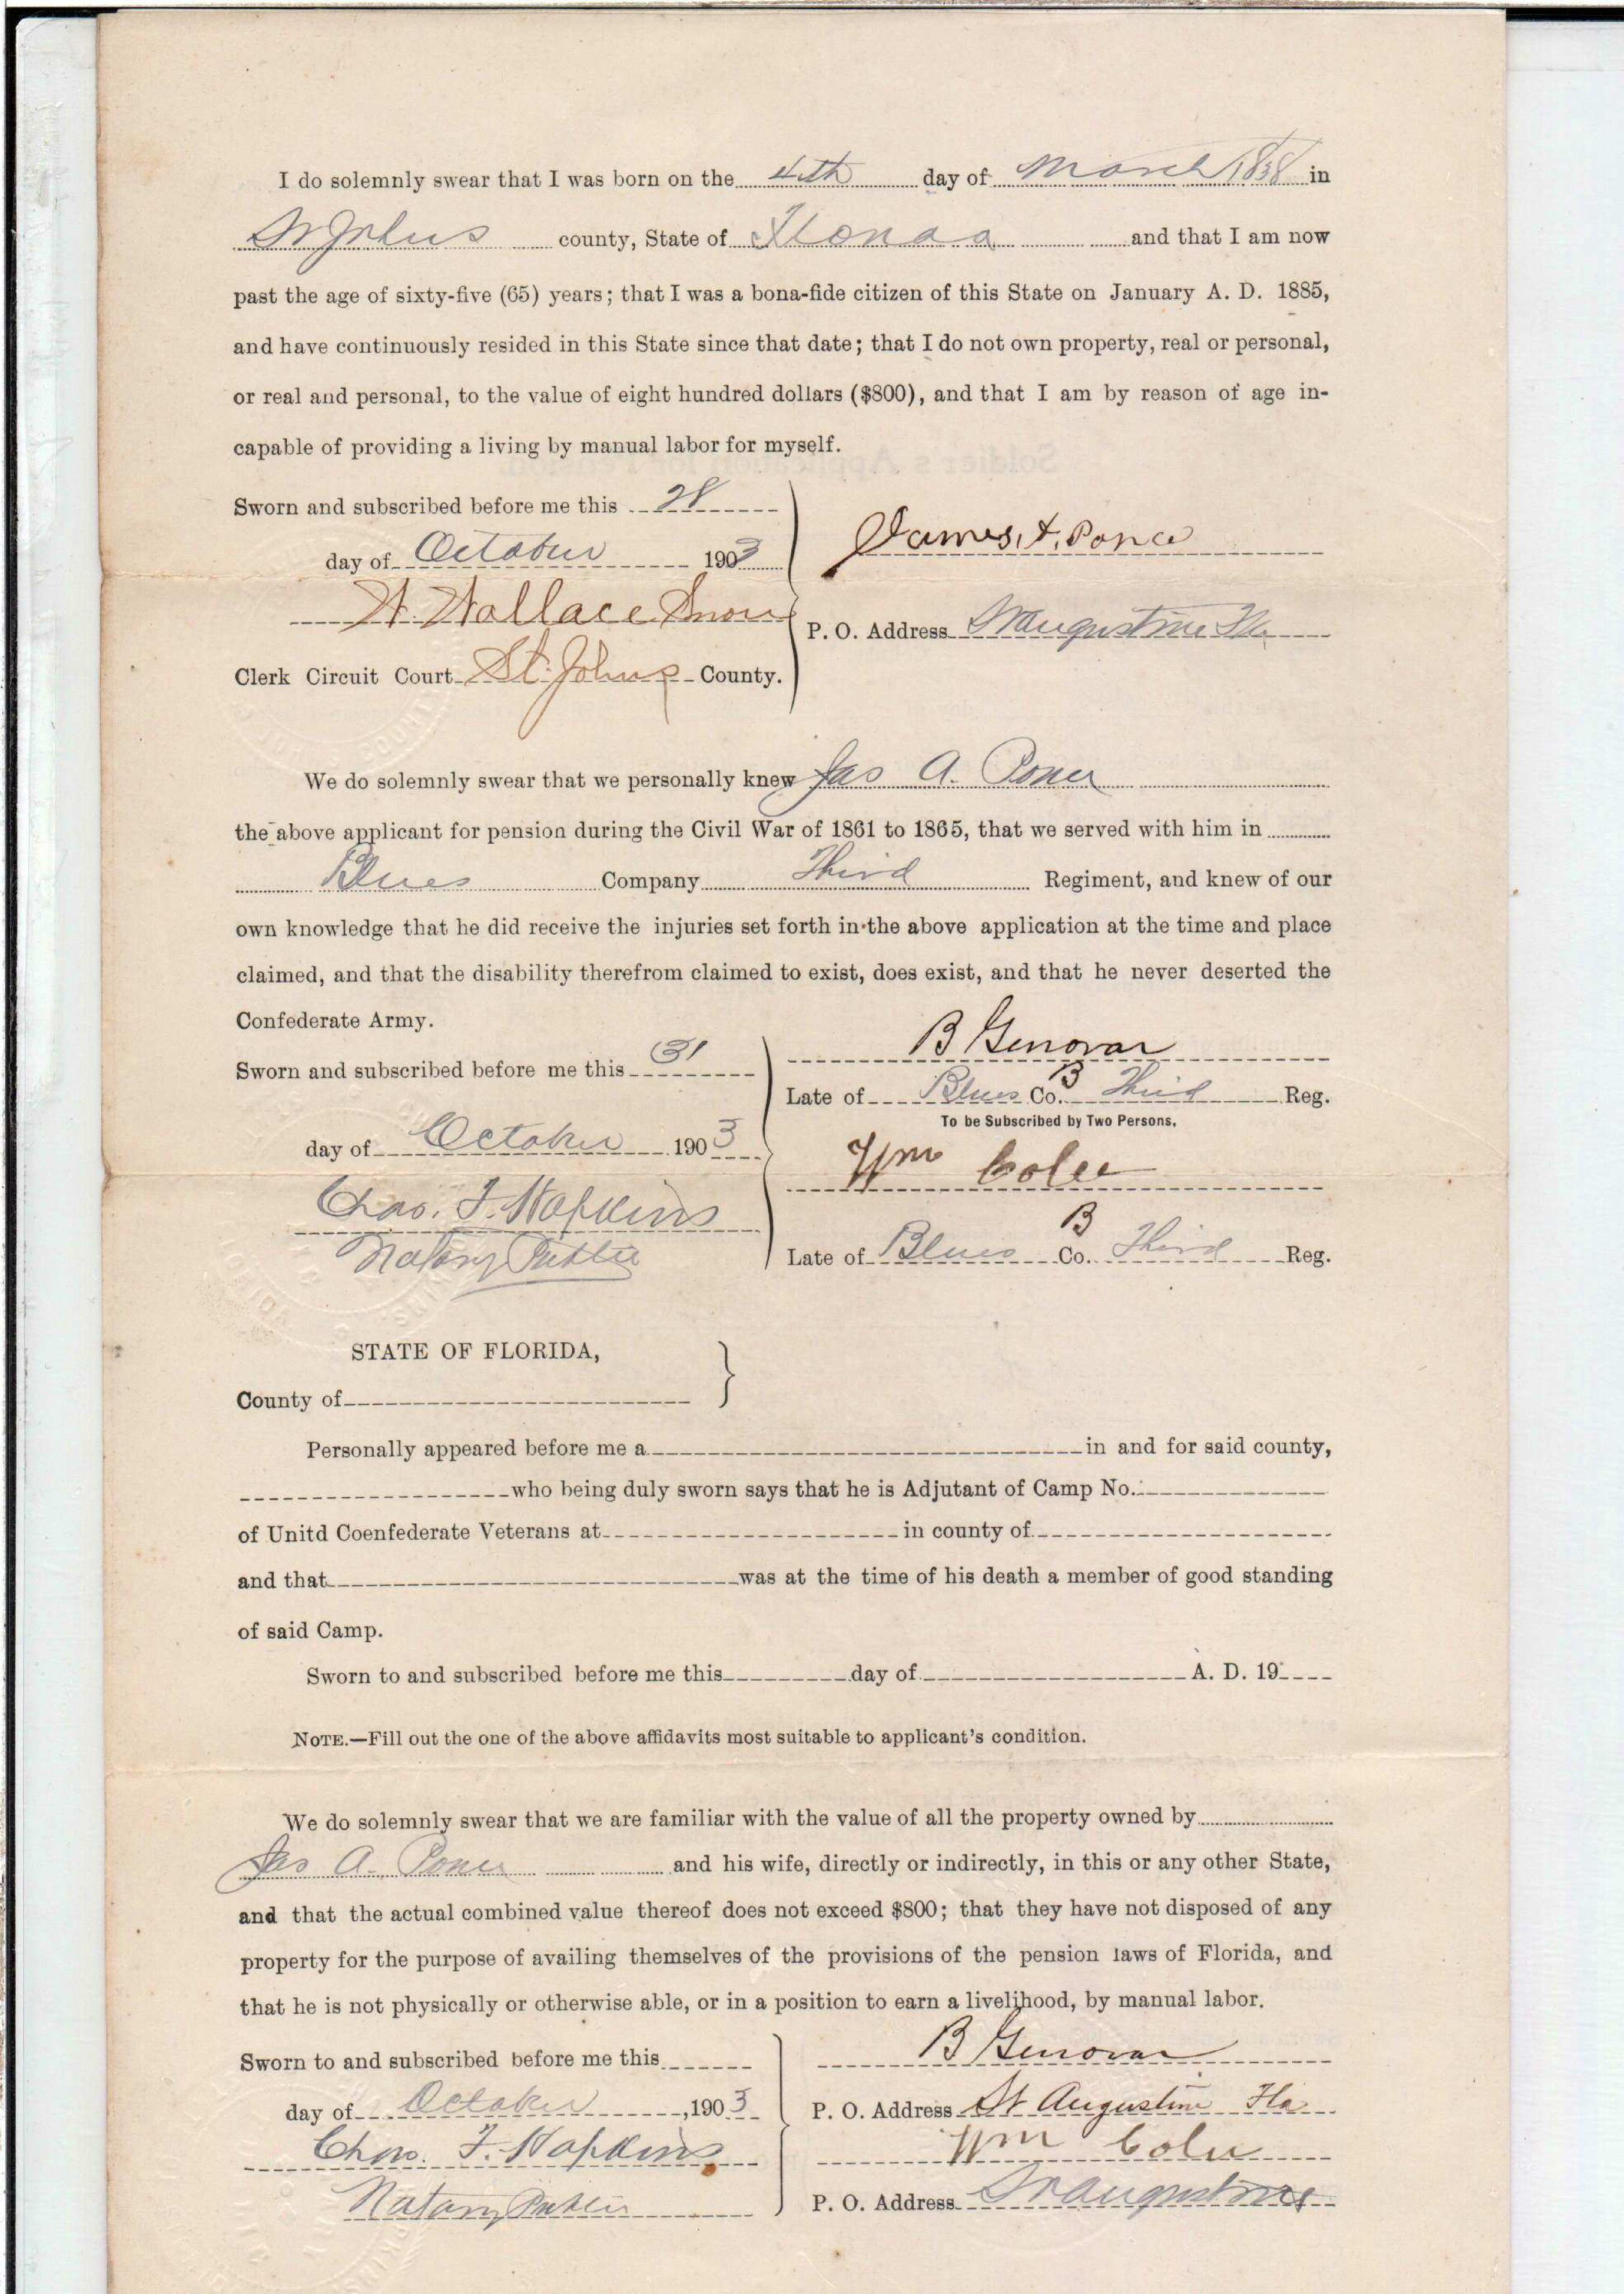 I do solemnly swear that I was born on the 4th day of March 1838 in
St Johns county, State of Florida and that I am now
past the age of sixty-five (65) years; that I was a bona-fide citizen of this State on January A. D. 1885,
and have continuously resided in this State since that date; that I do not own property, real or personal,
or real and personal, to the value of eight hundred dollars ($800), and that I am by reason of age in-
capable of providing a living by manual labor for myself.
Sworn and subscribed before me this 28
day of October 1903
James A. Ponce
W. Wallace Snow
P. O. Address St Augustine Fla
Clerk Circuit Court St. Johns County.
We do solemnly swear that we personally knew Jas A. Ponce
the above applicant for pension during the Civil War of 1861 to 1865, that we served with him in
Blues Company Third Regiment, and knew of our
own knowledge that he did receive the injuries set forth in the above application at the time and place
claimed, and that the disability therefrom claimed to exist, does exist, and that he never deserted the
Confederate Army.
Sworn and subscribed before me this 31
day of October 1903
Chas. F. Hopkins
Notary Public
B Genovar
Late of Blues Co. B Third Reg.
To be Subscribed by Two Persons.
Wm Colee
Late of Blues Co. B Third Reg.
STATE OF FLORIDA,
County of
Personally appeared before me a in and for said county,
who being duly sworn says that he is Adjutant of Camp No.
of Unitd Coenfederate Veterans at in county of
and that was at the time of his death a member of good standing
of said Camp.
Sworn to and subscribed before me this day of A. D. 19
NOTE.—Fill out the one of the above affidavits most suitable to applicant's condition.
We do solemnly swear that we are familiar with the value of all the property owned by
Jas A. Ponce and his wife, directly or indirectly, in this or any other State,
and that the actual combined value thereof does not exceed $800; that they have not disposed of any
property for the purpose of availing themselves of the provisions of the pension laws of Florida, and
that he is not physically or otherwise able, or in a position to earn a livelihood, by manual labor.
Sworn to and subscribed before me this
day of October, 1903
Chas. F. Hopkins
Notary Public
B Genovar
P. O. Address St Augustine Fla
Wm Colee
P. O. Address St Augustine